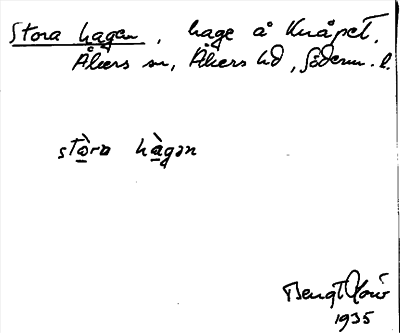 Stora hagen, hage å Knåpet,
Åkers sn, Åkers hd, Söderm. l.
stòra hàgən
Bengt
1935